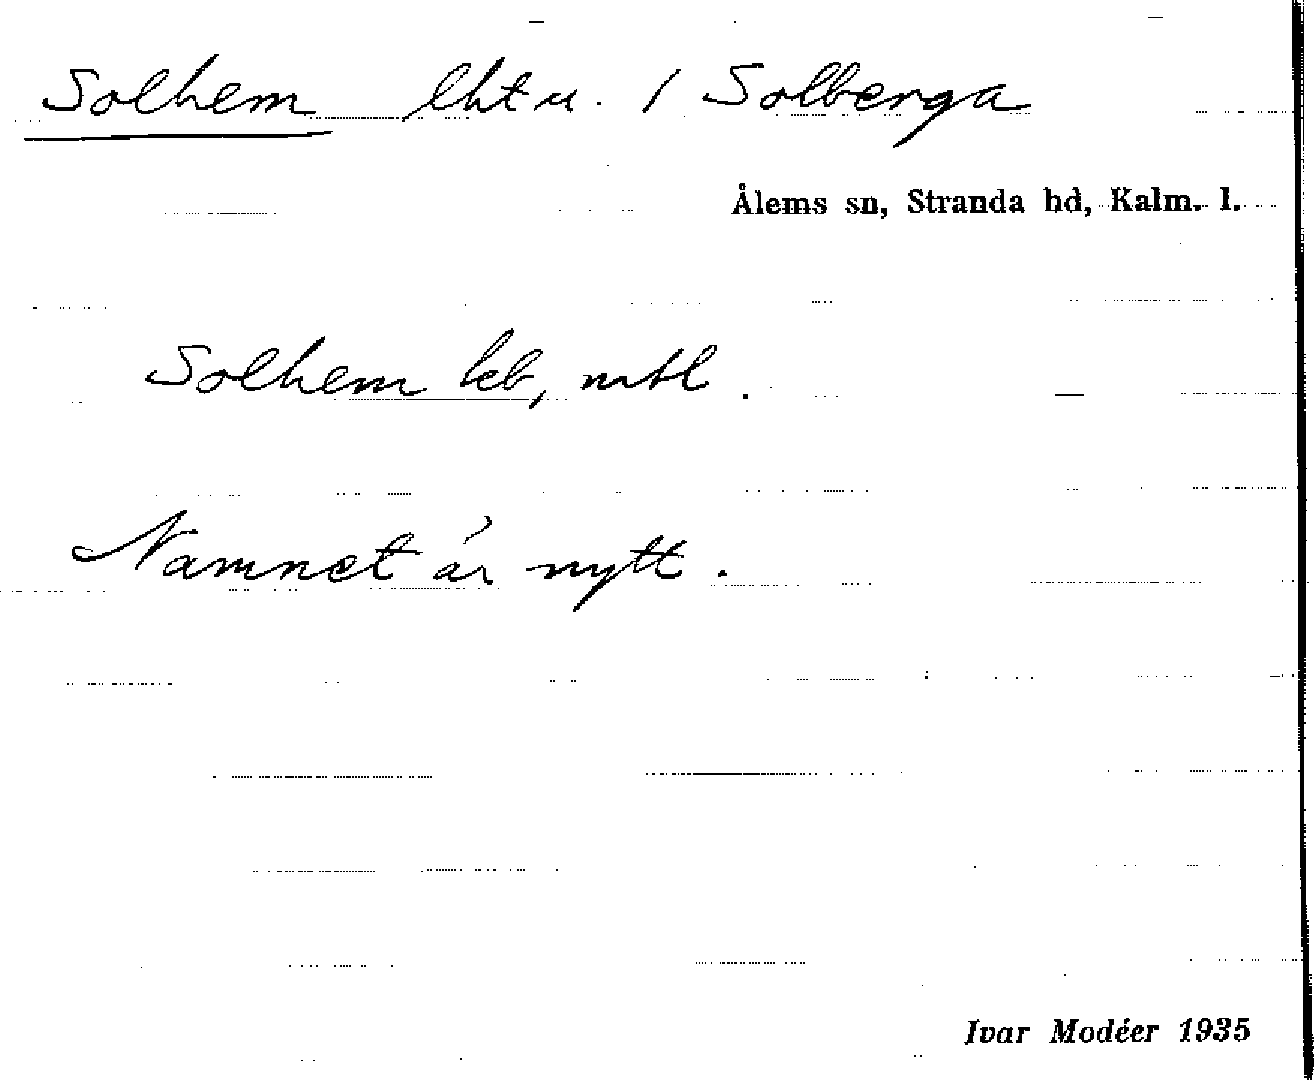 Solhem lht u. / Solberga
Ålems sn, Stranda hd, Kalm. l.
Solhem kb, mtl.
Namnet är nytt.
Ivar Modéer 1935